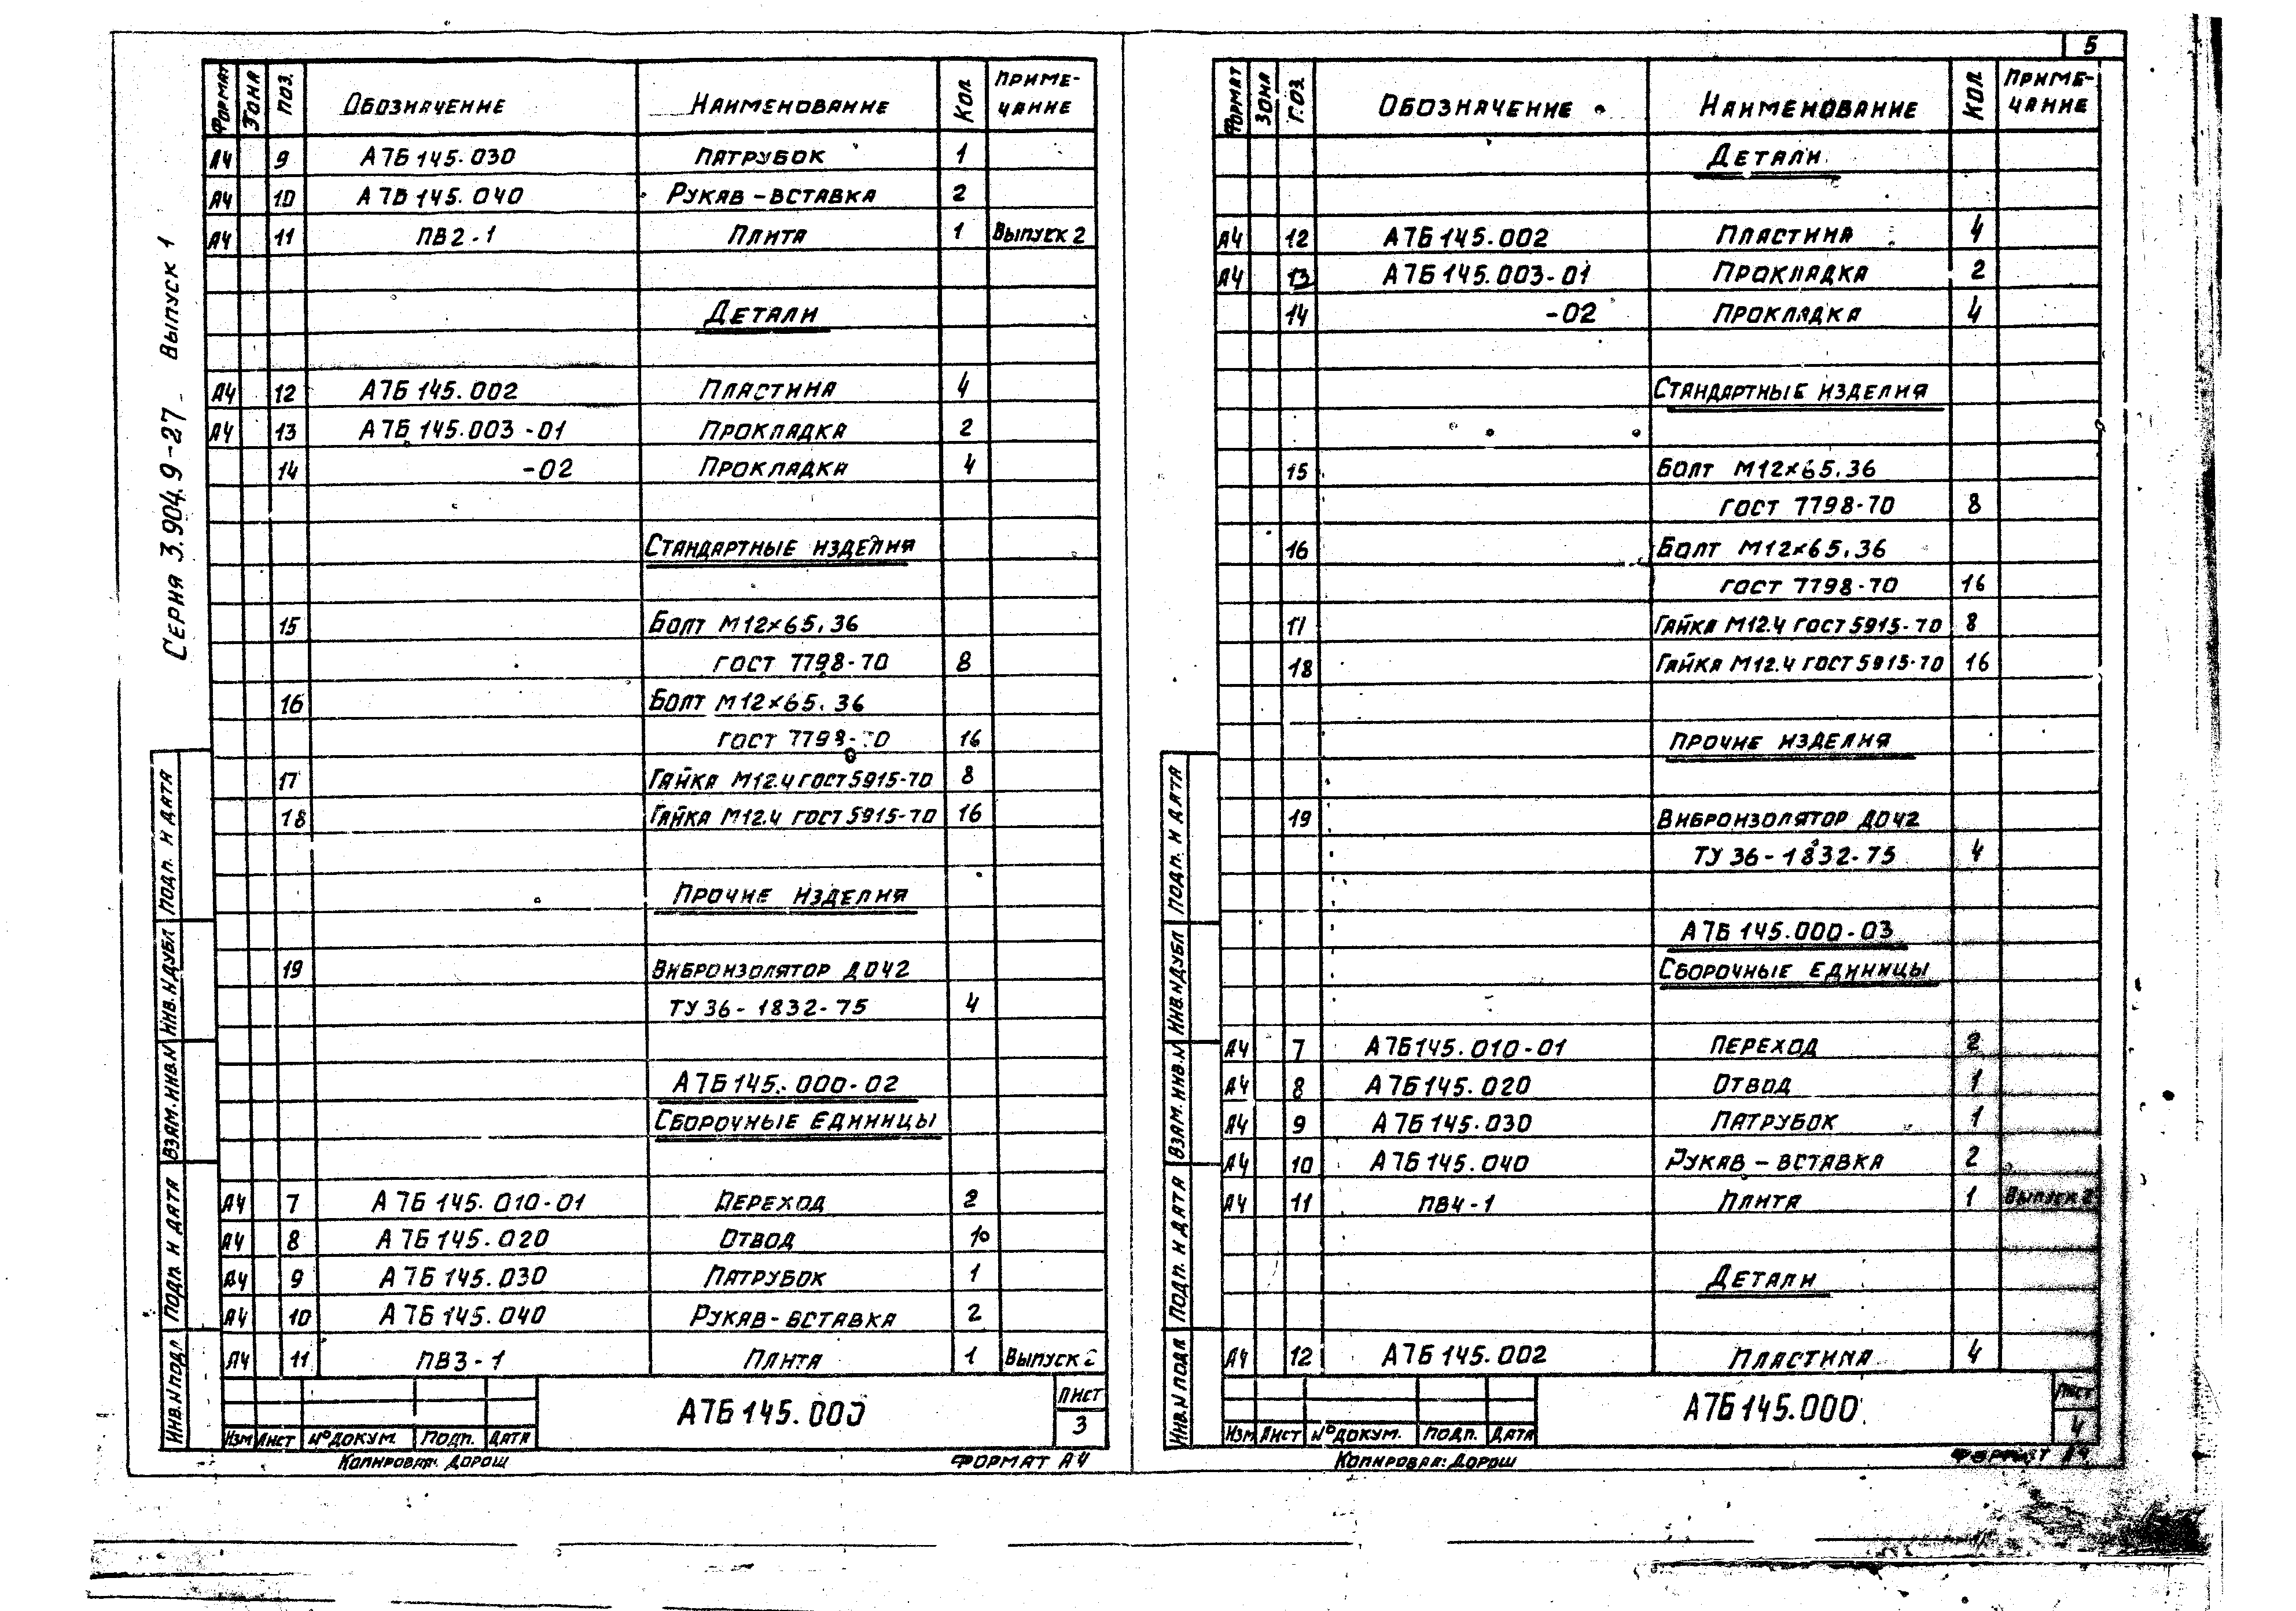 5
Серия 3.904.9-27 Выпуск 1
Формат Зона Поз. Обозначение Наименование Кол Приме-
чание
А4 9 А7Б 145.030 Патрубок 1
А4 10 А7Б 145.040 Рукав-вставка 2
А4 11 ПВ2-1 Плита 1 Выпуск 2
Детали
А4 12 А7Б 145.002 Пластина 4
А4 13 А7Б 145.003-01 Прокладка 2
14 -02 Прокладка 4
Стандартные изделия
15 Болт М12×65.36
ГОСТ 7798-70 8
16 Болт М12×65.36
ГОСТ 7798-70 16
17 Гайка М12.4 ГОСТ 5915-70 8
18 Гайка М12.4 ГОСТ 5915-70 16
Прочие изделия
19 Виброизолятор ДО42
ТУ 36-1832-75 4
А7Б 145.000-02
Сборочные единицы
А4 7 А7Б 145.010-01 Переход 2
А4 8 А7Б 145.020 Отвод 10
А4 9 А7Б 145.030 Патрубок 1
А4 10 А7Б 145.040 Рукав-вставка 2
А4 11 ПВ3-1 Плита 1 Выпуск 2
Подп. и дата
Инв.№дубл
Взам.инв.№
Подп. и дата
Инв.№подл.
А7Б 145.000
Лист
3
Изм Лист №докум. Подп. Дата
Копировал: Дорош Формат А4
Формат Зона Поз. Обозначение Наименование Кол Приме-
чание
Детали
А4 12 А7Б 145.002 Пластина 4
А4 13 А7Б 145.003-01 Прокладка 2
14 -02 Прокладка 4
Стандартные изделия
15 Болт М12×65.36
ГОСТ 7798-70 8
16 Болт М12×65.36
ГОСТ 7798-70 16
17 Гайка М12.4 ГОСТ 5915-70 8
18 Гайка М12.4 ГОСТ 5915-70 16
Прочие изделия
19 Виброизолятор ДО42
ТУ 36-1832-75 4
А7Б 145.000-03
Сборочные единицы
А4 7 А7Б 145.010-01 Переход 2
А4 8 А7Б 145.020 Отвод 1
А4 9 А7Б 145.030 Патрубок 1
А4 10 А7Б 145.040 Рукав-вставка 2
А4 11 ПВ4-1 Плита 1 Выпуск 2
Детали
А4 12 А7Б 145.002 Пластина 4
Подп. и дата
Инв.№дубл
Взам.инв.№
Подп. и дата
Инв.№подл
А7Б 145.000
Лист
4
Изм Лист №докум. Подп. Дата
Копировал: Дорош Формат А4